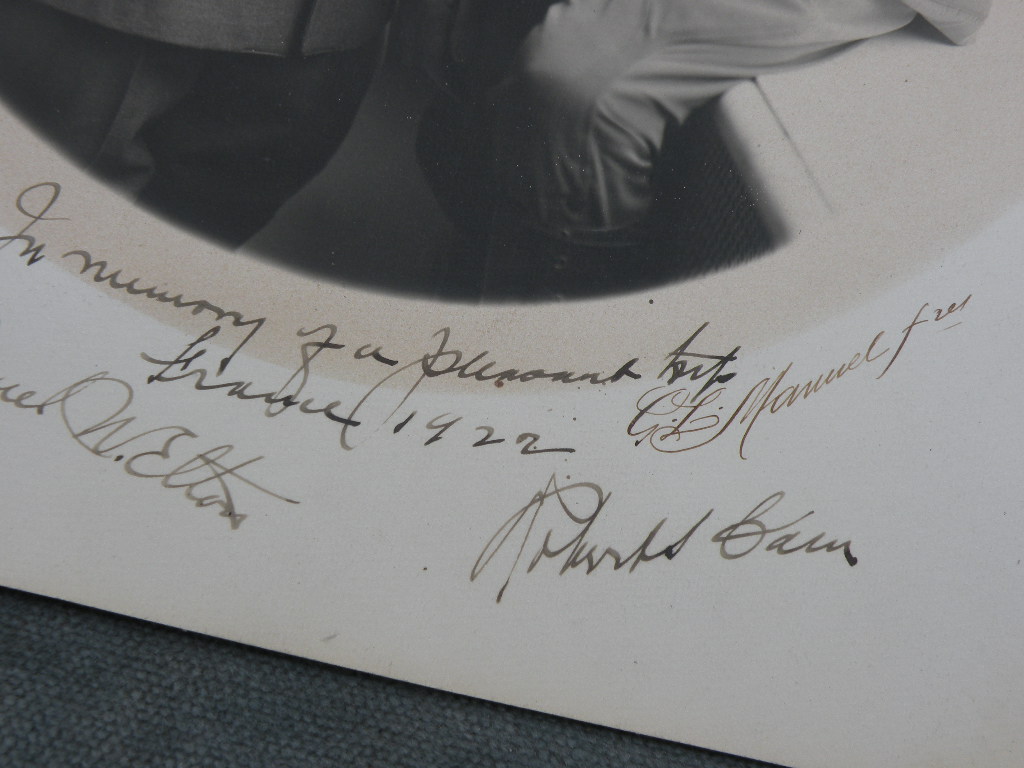 In memory of a pleasant trip
France 1922
G.L. Manuel fres
W. Elton
Robert S